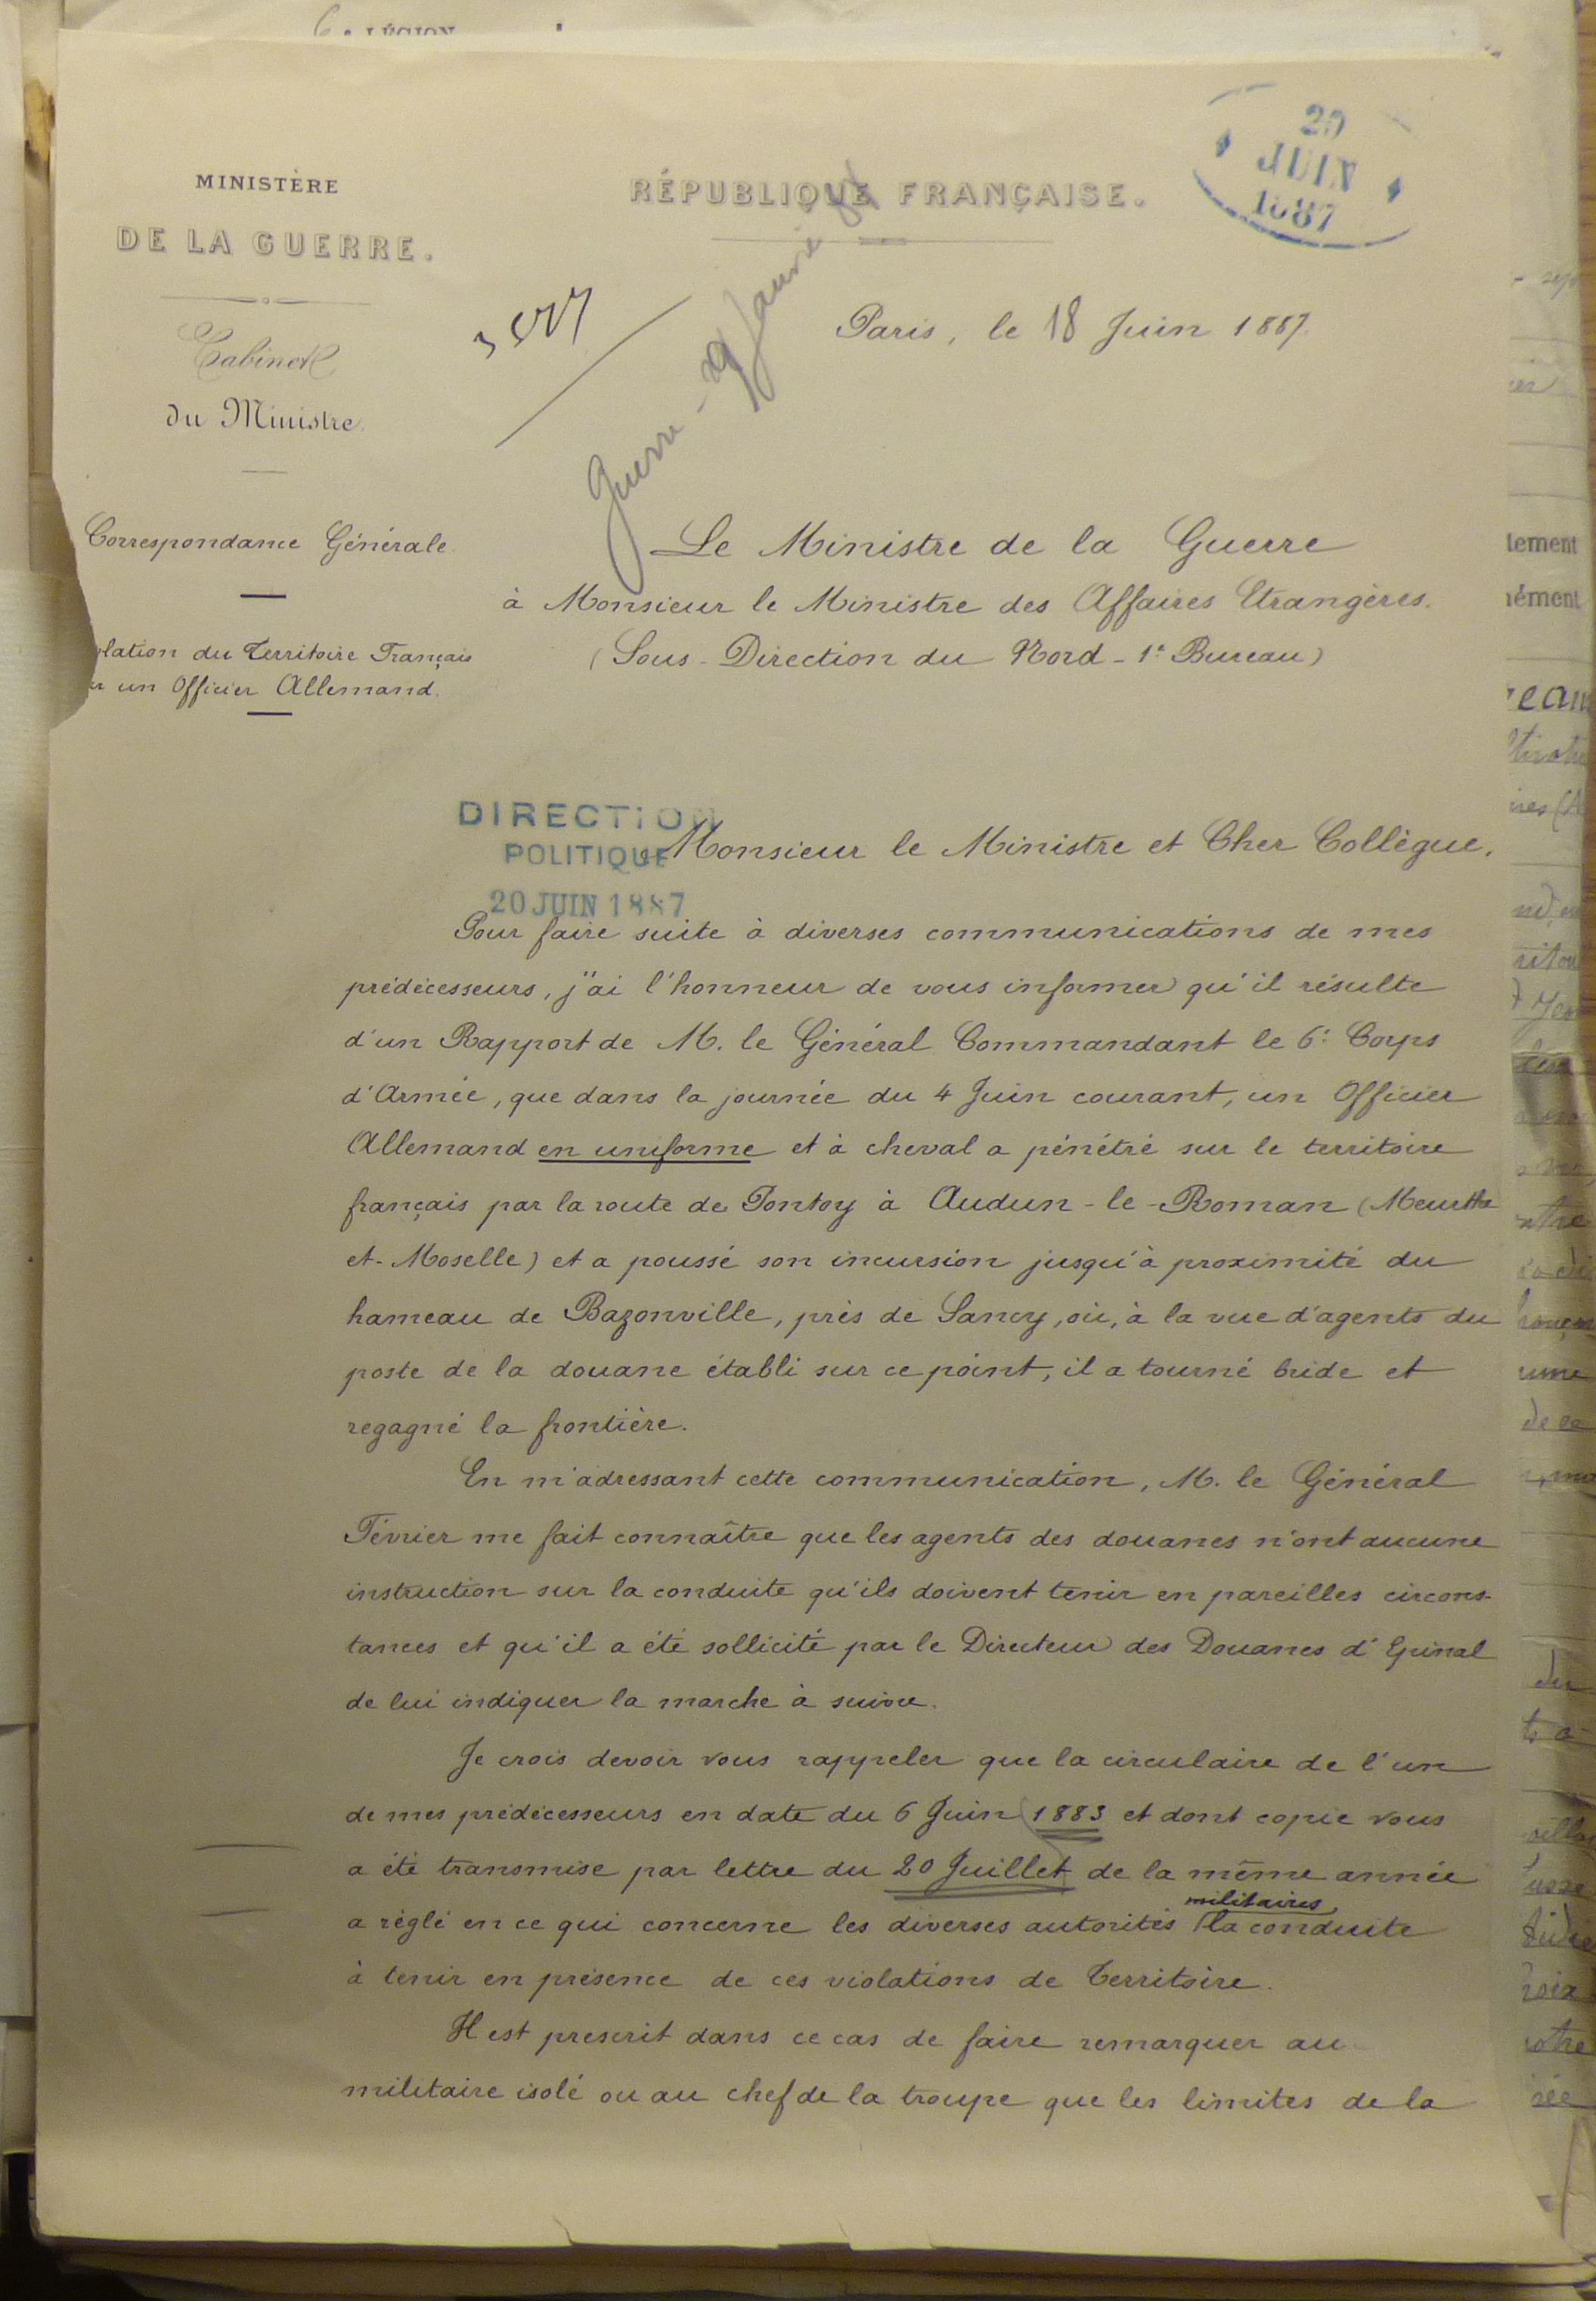 6e LÉGION
20
JUIN
1887
MINISTÈRE
DE LA GUERRE.
RÉPUBLIQUE FRANÇAISE.
Cabinet
du Ministre.
Paris, le 18 Juin 1887.
Guerre - 29 Janvier
Correspondance Générale.
olation du Territoire Français
un Officier Allemand.
Le Ministre de la Guerre
à Monsieur le Ministre des Affaires Etrangères.
(Sous-Direction du Nord - 1er Bureau)
DIRECTION
POLITIQUE
20 JUIN 1887
Monsieur le Ministre et Cher Collègue,
Pour faire suite à diverses communications de mes
prédécesseurs, j'ai l'honneur de vous informer qu'il résulte
d'un Rapport de M. le Général Commandant le 6e Corps
d'Armée, que dans la journée du 4 Juin courant, un Officier
Allemand en uniforme et à cheval a pénétré sur le territoire
français par la route de Fontoy à Audun-le-Roman (Meurthe
et-Moselle) et a poussé son incursion jusqu'à proximité du
hameau de Bazonville, près de Sancy, où, à la vue d'agents du
poste de la douane établi sur ce point, il a tourné bride et
regagné la frontière.
En m'adressant cette communication, M. le Général
Février me fait connaître que les agents des douanes n'ont aucune
instruction sur la conduite qu'ils doivent tenir en pareilles circons-
tances et qu'il a été sollicité par le Directeur des Douanes d'Epinal
de lui indiquer la marche à suivre.
Je crois devoir vous rappeler que la circulaire de l'un
de mes prédécesseurs en date du 6 Juin 1883 et dont copie vous
a été transmise par lettre du 20 Juillet de la même année
a réglé en ce qui concerne les diverses autorités militaires la conduite
à tenir en présence de ces violations de Territoire.
Il est prescrit dans ce cas de faire remarquer au
militaire isolé ou au chef de la troupe que les limites de la